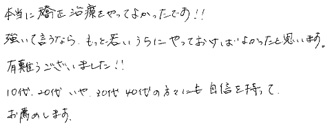 本当に矯正治療をやってよかったです!!
強いて言うなら、もっと若いうちにやっておけばよかったと思います。
有難うございました!!
10代、20代、いや、30代、40代の方々にも自信を持って
お薦めします。